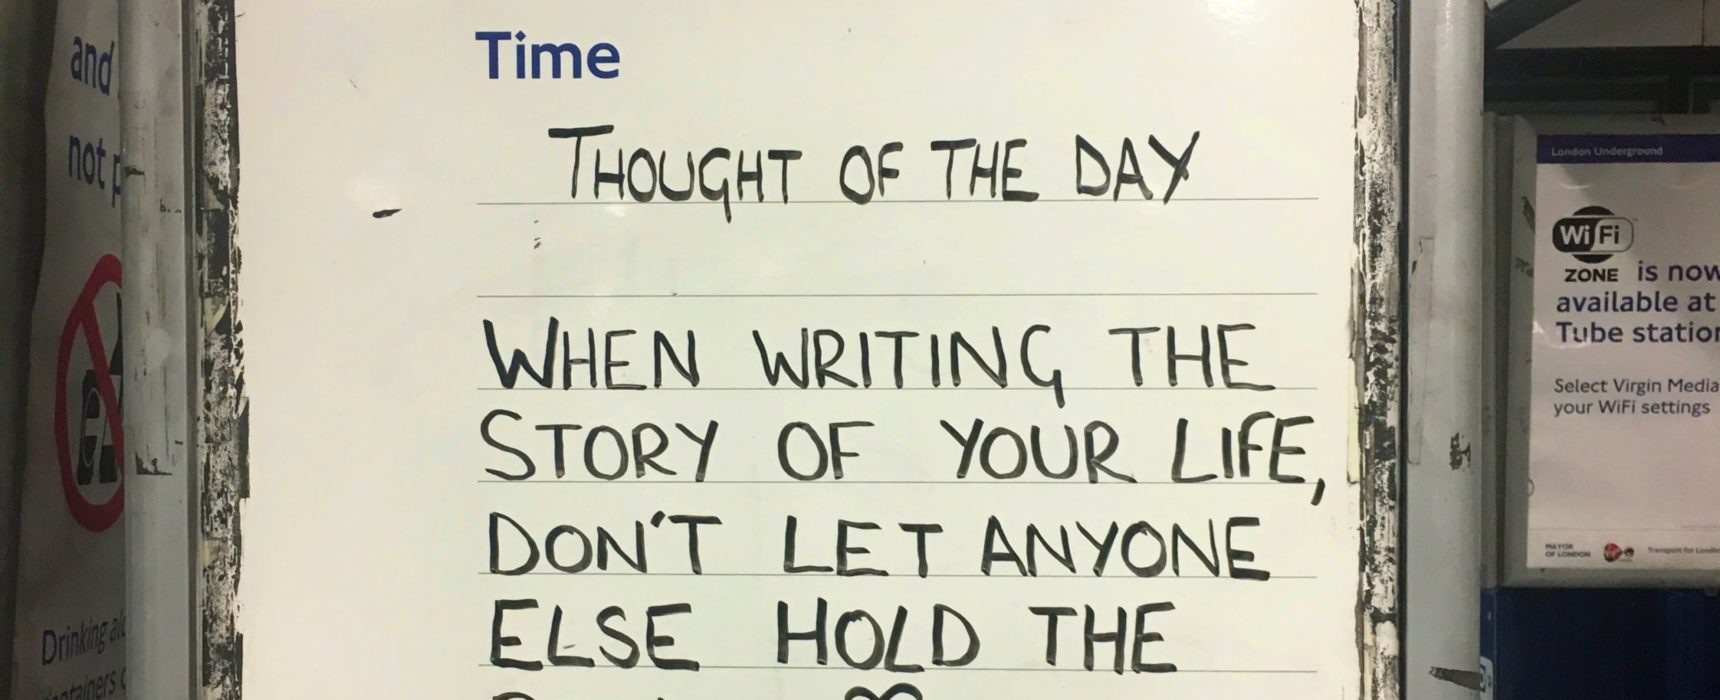 and
not
Drinking
Time
THOUGHT OF THE DAY
WHEN WRITING THE
STORY OF YOUR LIFE,
DON'T LET ANYONE
ELSE HOLD THE
London Underground
WiFi
ZONE is now
available at
Tube station
Select Virgin Media
your WiFi settings
MAYOR
OF LONDON
Transport for London